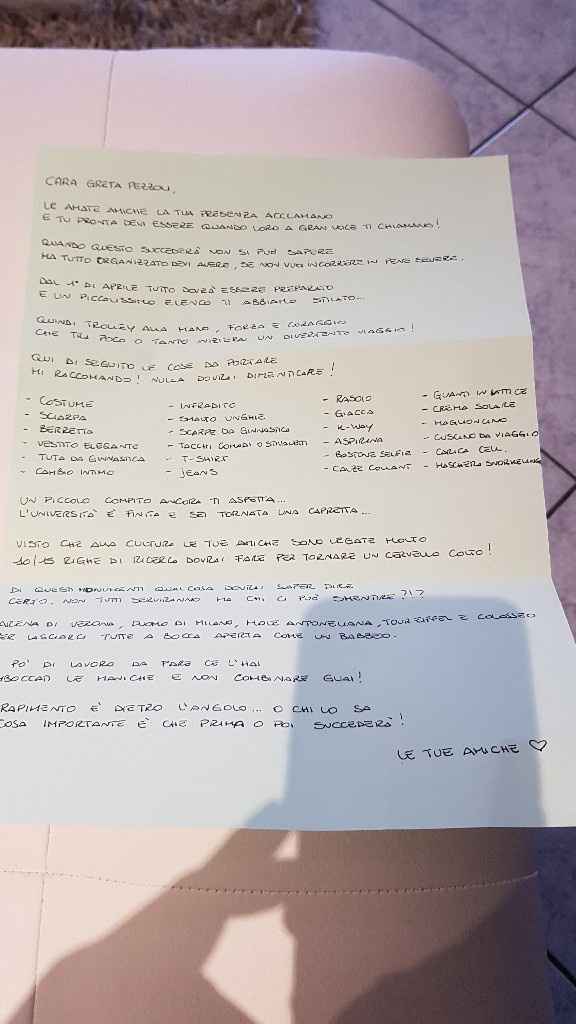 CARA GRETA PEZZOLI,
LE AMATE AMICHE LA TUA PRESENZA ACCLAMANO
E TU PRONTA DEVI ESSERE QUANDO LORO A GRAN VOCE TI CHIAMANO!
QUANDO QUESTO SUCCEDERÀ NON SI PUÒ SAPERE
MA TUTTO ORGANIZZATO DEVI AVERE, SE NON VUOI INCORRERE IN PENE SEVERE.
DAL 1° DI APRILE TUTTO DOVRÀ ESSERE PREPARATO
E UN PICCOLISSIMO ELENCO TI ABBIAMO STILATO...
QUINDI TROLLEY ALLA MANO, FORZA E CORAGGIO
CHE TRA POCO O TANTO INIZIERÀ UN DIVERTENTE VIAGGIO!
QUI DI SEGUITO LE COSE DA PORTARE
MI RACCOMANDO! NULLA DOVRAI DIMENTICARE!
- COSTUME - INFRADITO - RASOIO - GUANTI IN LATTICE
- SCIARPA - SMALTO UNGHIE - GIACCA - CREMA SOLARE
- BERRETTA - SCARPE DA GINNASTICA - K-WAY - MAGLIONCINO
- VESTITO ELEGANTE - TACCHI COMODI O STIVALETTI - ASPIRINA - CUSCINO DA VIAGGIO
- TUTA DA GINNASTICA - T-SHIRT - BASTONE SELFIE - CARICA CELL.
- CAMBIO INTIMO - JEANS - CALZE COLLANT - MASCHERA SNORKELING
UN PICCOLO COMPITO ANCORA TI ASPETTA...
L'UNIVERSITÀ È FINITA E SEI TORNATA UNA CAPRETTA...
VISTO CHE ALLA CULTURA LE TUE AMICHE SONO LEGATE MOLTO
10/15 RIGHE DI RICERCA DOVRAI FARE PER TORNARE UN CERVELLO COLTO!
DI QUESTI MONUMENTI QUALCOSA DOVRAI SAPER DIRE
CERTO. NON TUTTI SERVIRANNO MA CHI CI PUÒ SMENTIRE?!?
ARENA DI VERONA, DUOMO DI MILANO, MOLE ANTONELLIANA, TOUR EIFFEL E COLOSSEO
PER LASCIARCI TUTTE A BOCCA APERTA COME UN BABBEO.
PO' DI LAVORO DA FARE CE L'HAI
MBOCCATI LE MANICHE E NON COMBINARE GUAI!
RAPIMENTO È DIETRO L'ANGOLO... O CHI LO SA
COSA IMPORTANTE È CHE PRIMA O POI SUCCEDERÀ!
LE TUE AMICHE ♡